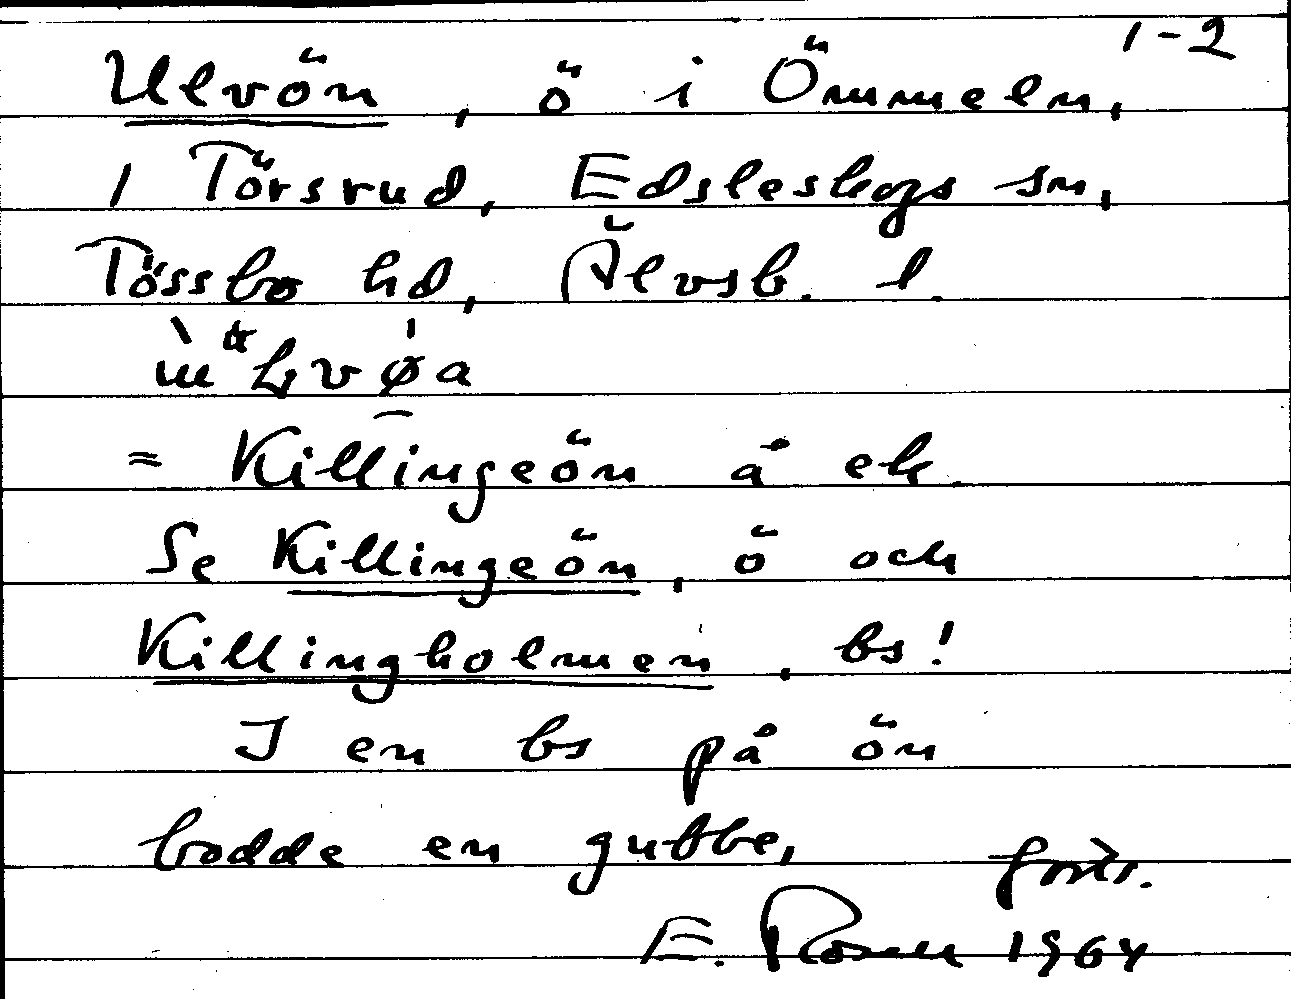 1-2
Ulvön, ö i Ömmeln,
1 Törsrud, Edsleskogs sn,
Tössbo hd, Älvsb. l.
= Killingeön å ek.
Se Killingeön, ö och
Killingholmen, bs!
I en bs på ön
bodde en gubbe, forts.
E. Rosell 1964